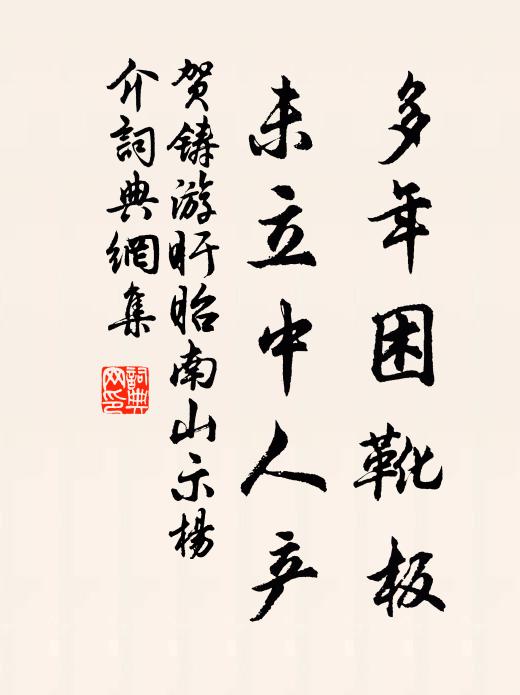 多年困靴板
未立中人产
贺铸游盱眙南山示杨
介词典網集
詞典網印